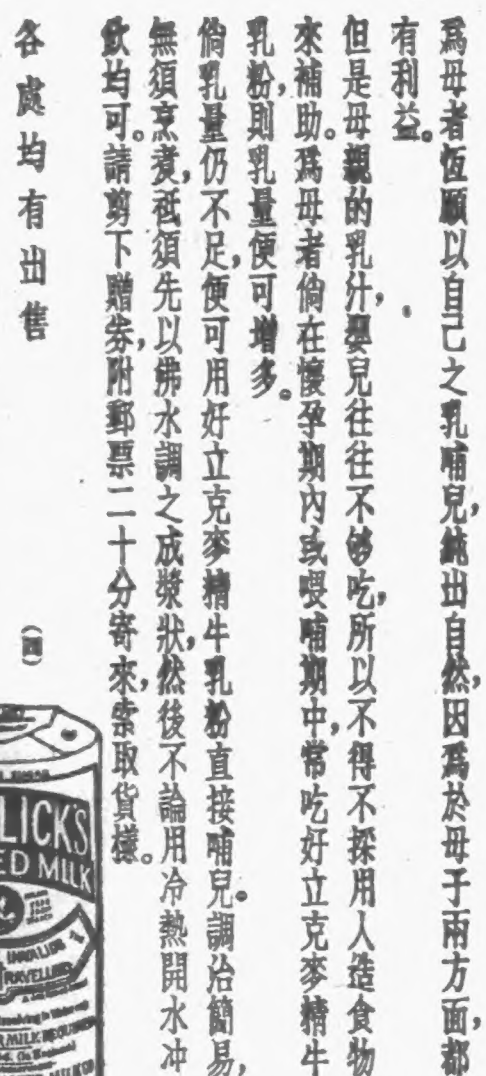 爲母者恆願以自己之乳哺兒，純出自然，因爲於母子兩方面，都
有利益。
但是母親的乳汁，嬰兒往往不够吃，所以不得不採用人造食物
來補助。爲母者倘在懷孕期內或喂哺期中，常吃好立克麥精牛
乳粉，則乳量便可增多。
倘乳量仍不足，便可用好立克麥精牛乳粉直接哺兒。調治簡易，
無須烹煑，祗須先以沸水調之成漿狀，然後不論用冷熱開水冲
飲均可。請剪下贈券，附郵票二十分寄來，索取貨樣。
各處均有出售
(四)
LICK'S
ED MILK
INVALIDS
TRAVELLERS